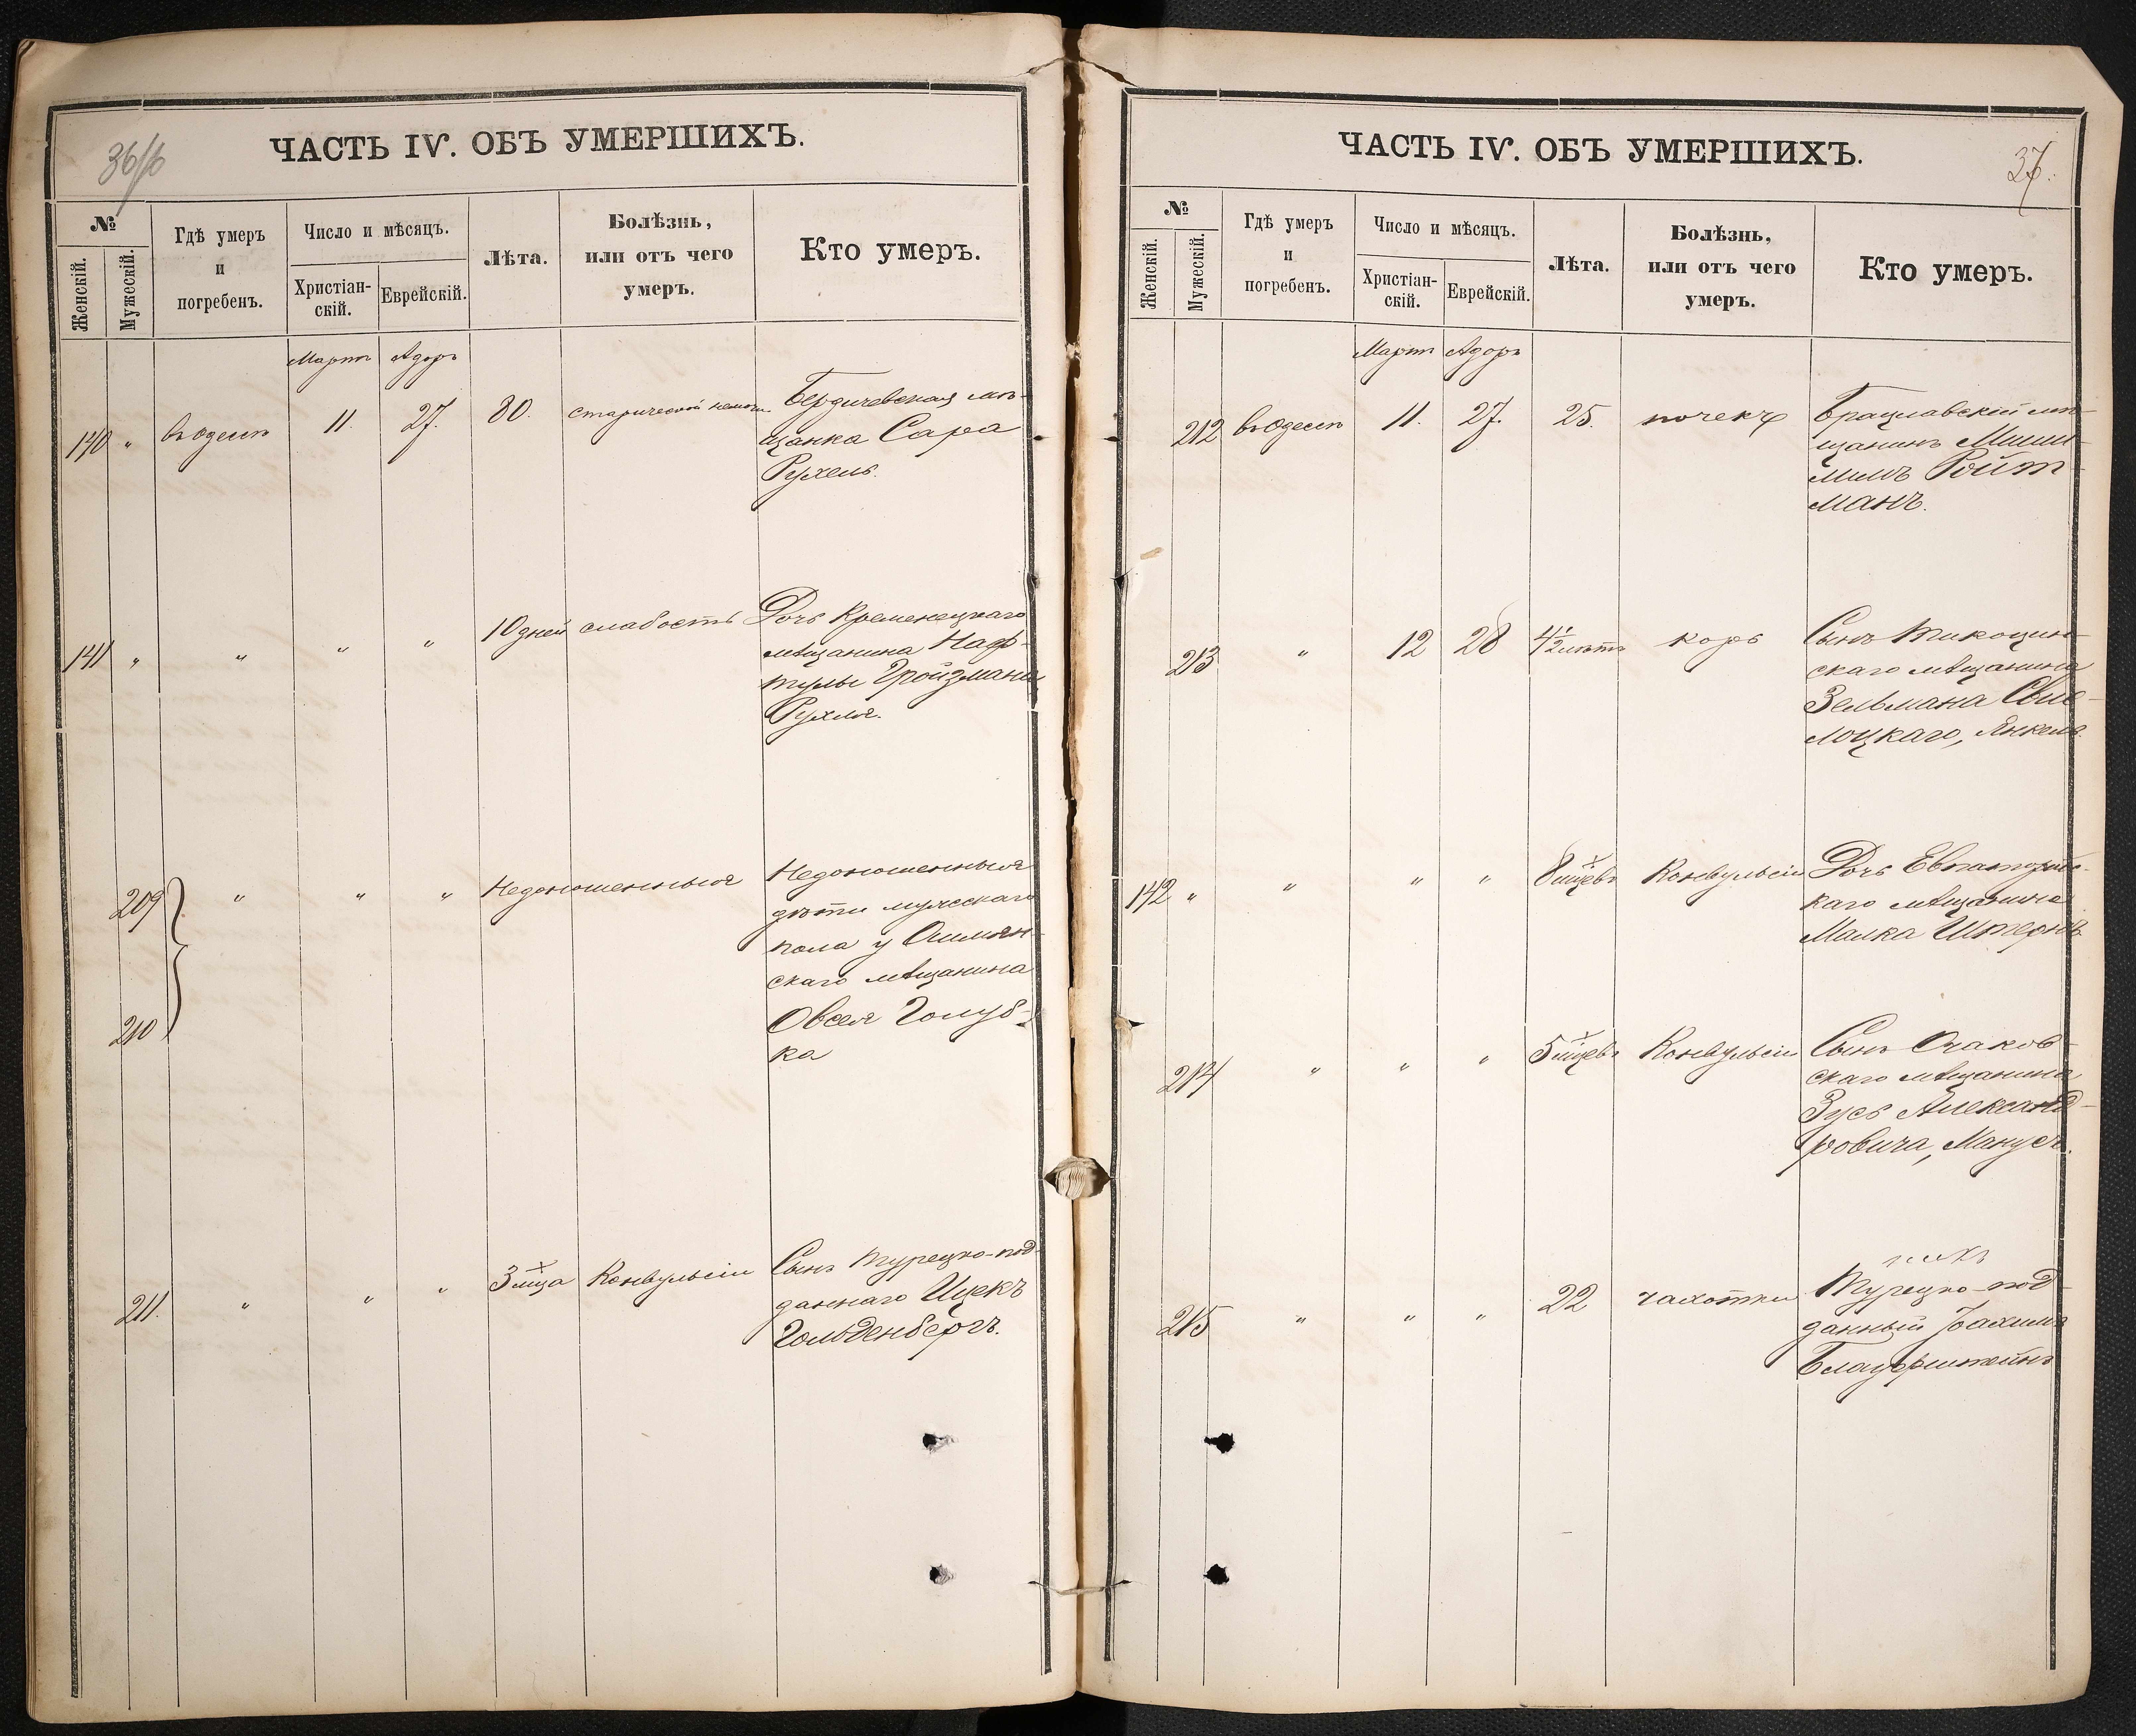 36/б
ЧАСТЬ IV. ОБЪ УМЕРШИХЪ.
№
Женскій.
Мужескій.
Гдѣ умеръ
и
погребенъ.
Число и мѣсяцъ.
Христіан-
скій.
Еврейскій.
Лѣта.
Болѣзнь,
или отъ чего
умеръ.
Кто умеръ.
Мартъ Адоръ
140 " въ Одессѣ 11. 27. 80. старческой немощи Бердичевская мѣ-
щанка Сара
Рухель.
141 " " " " 10 дней слабость Дочь Кременецкаго
мѣщанина Наф-
тулы Гройзмана
Рухля.
209 " " " Недоношенныя Недоношенныя
дѣти мужескаго
пола у Ошмян-
скаго мѣщанина
Овсея Голуб-
ка
210
211. " " " 3 мѣца Конвульсіи Сынъ турецко-под-
даннаго Ицекъ
Гольденбергъ.
37.
ЧАСТЬ IV. ОБЪ УМЕРШИХЪ.
№
Женскій.
Мужескій.
Гдѣ умеръ
и
погребенъ.
Число и мѣсяцъ.
Христіан-
скій.
Еврейскій.
Лѣта.
Болѣзнь,
или отъ чего
умеръ.
Кто умеръ.
Мартъ Адоръ
212 въ Одессѣ 11. 27. 25. почекъ Брацлавскій мѣ-
щанинъ
Ройт
манъ.
213 " 12 28 4½ лѣтъ корь Сынъ Тикоцин-
скаго мѣщанина
Зельмана
лоцкаго, Янкель.
142 " " " " 8 мѣцевъ Конвульсіи Дочь Евпаторійс-
каго мѣщанина
Малка Штернъ
214 " " " 5 мѣцевъ Конвульсіи Сынъ Очаков-
скаго мѣщанина
Зусь Александ-
ровича, Манусъ.
215 " " " 22 чахотки Турецко-под-
данный Іоахимъ
Блауфштейнъ